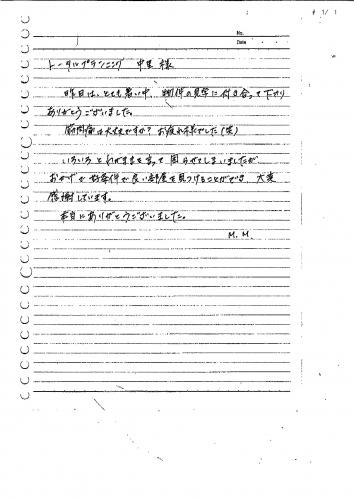 No.
Date
トータルプランニング 中里 様
昨日は、とても暑い中、物件の見学に付き合って下さり
ありがとうございました。
筋肉痛は大丈夫ですか？ お疲れ様でした（笑）
いろいろとわがままを言って 困らせてしまいましたが
おかげで 好条件の良い部屋を見つけることができ、大変
感謝しています。
本当にありがとうございました。
M.M.